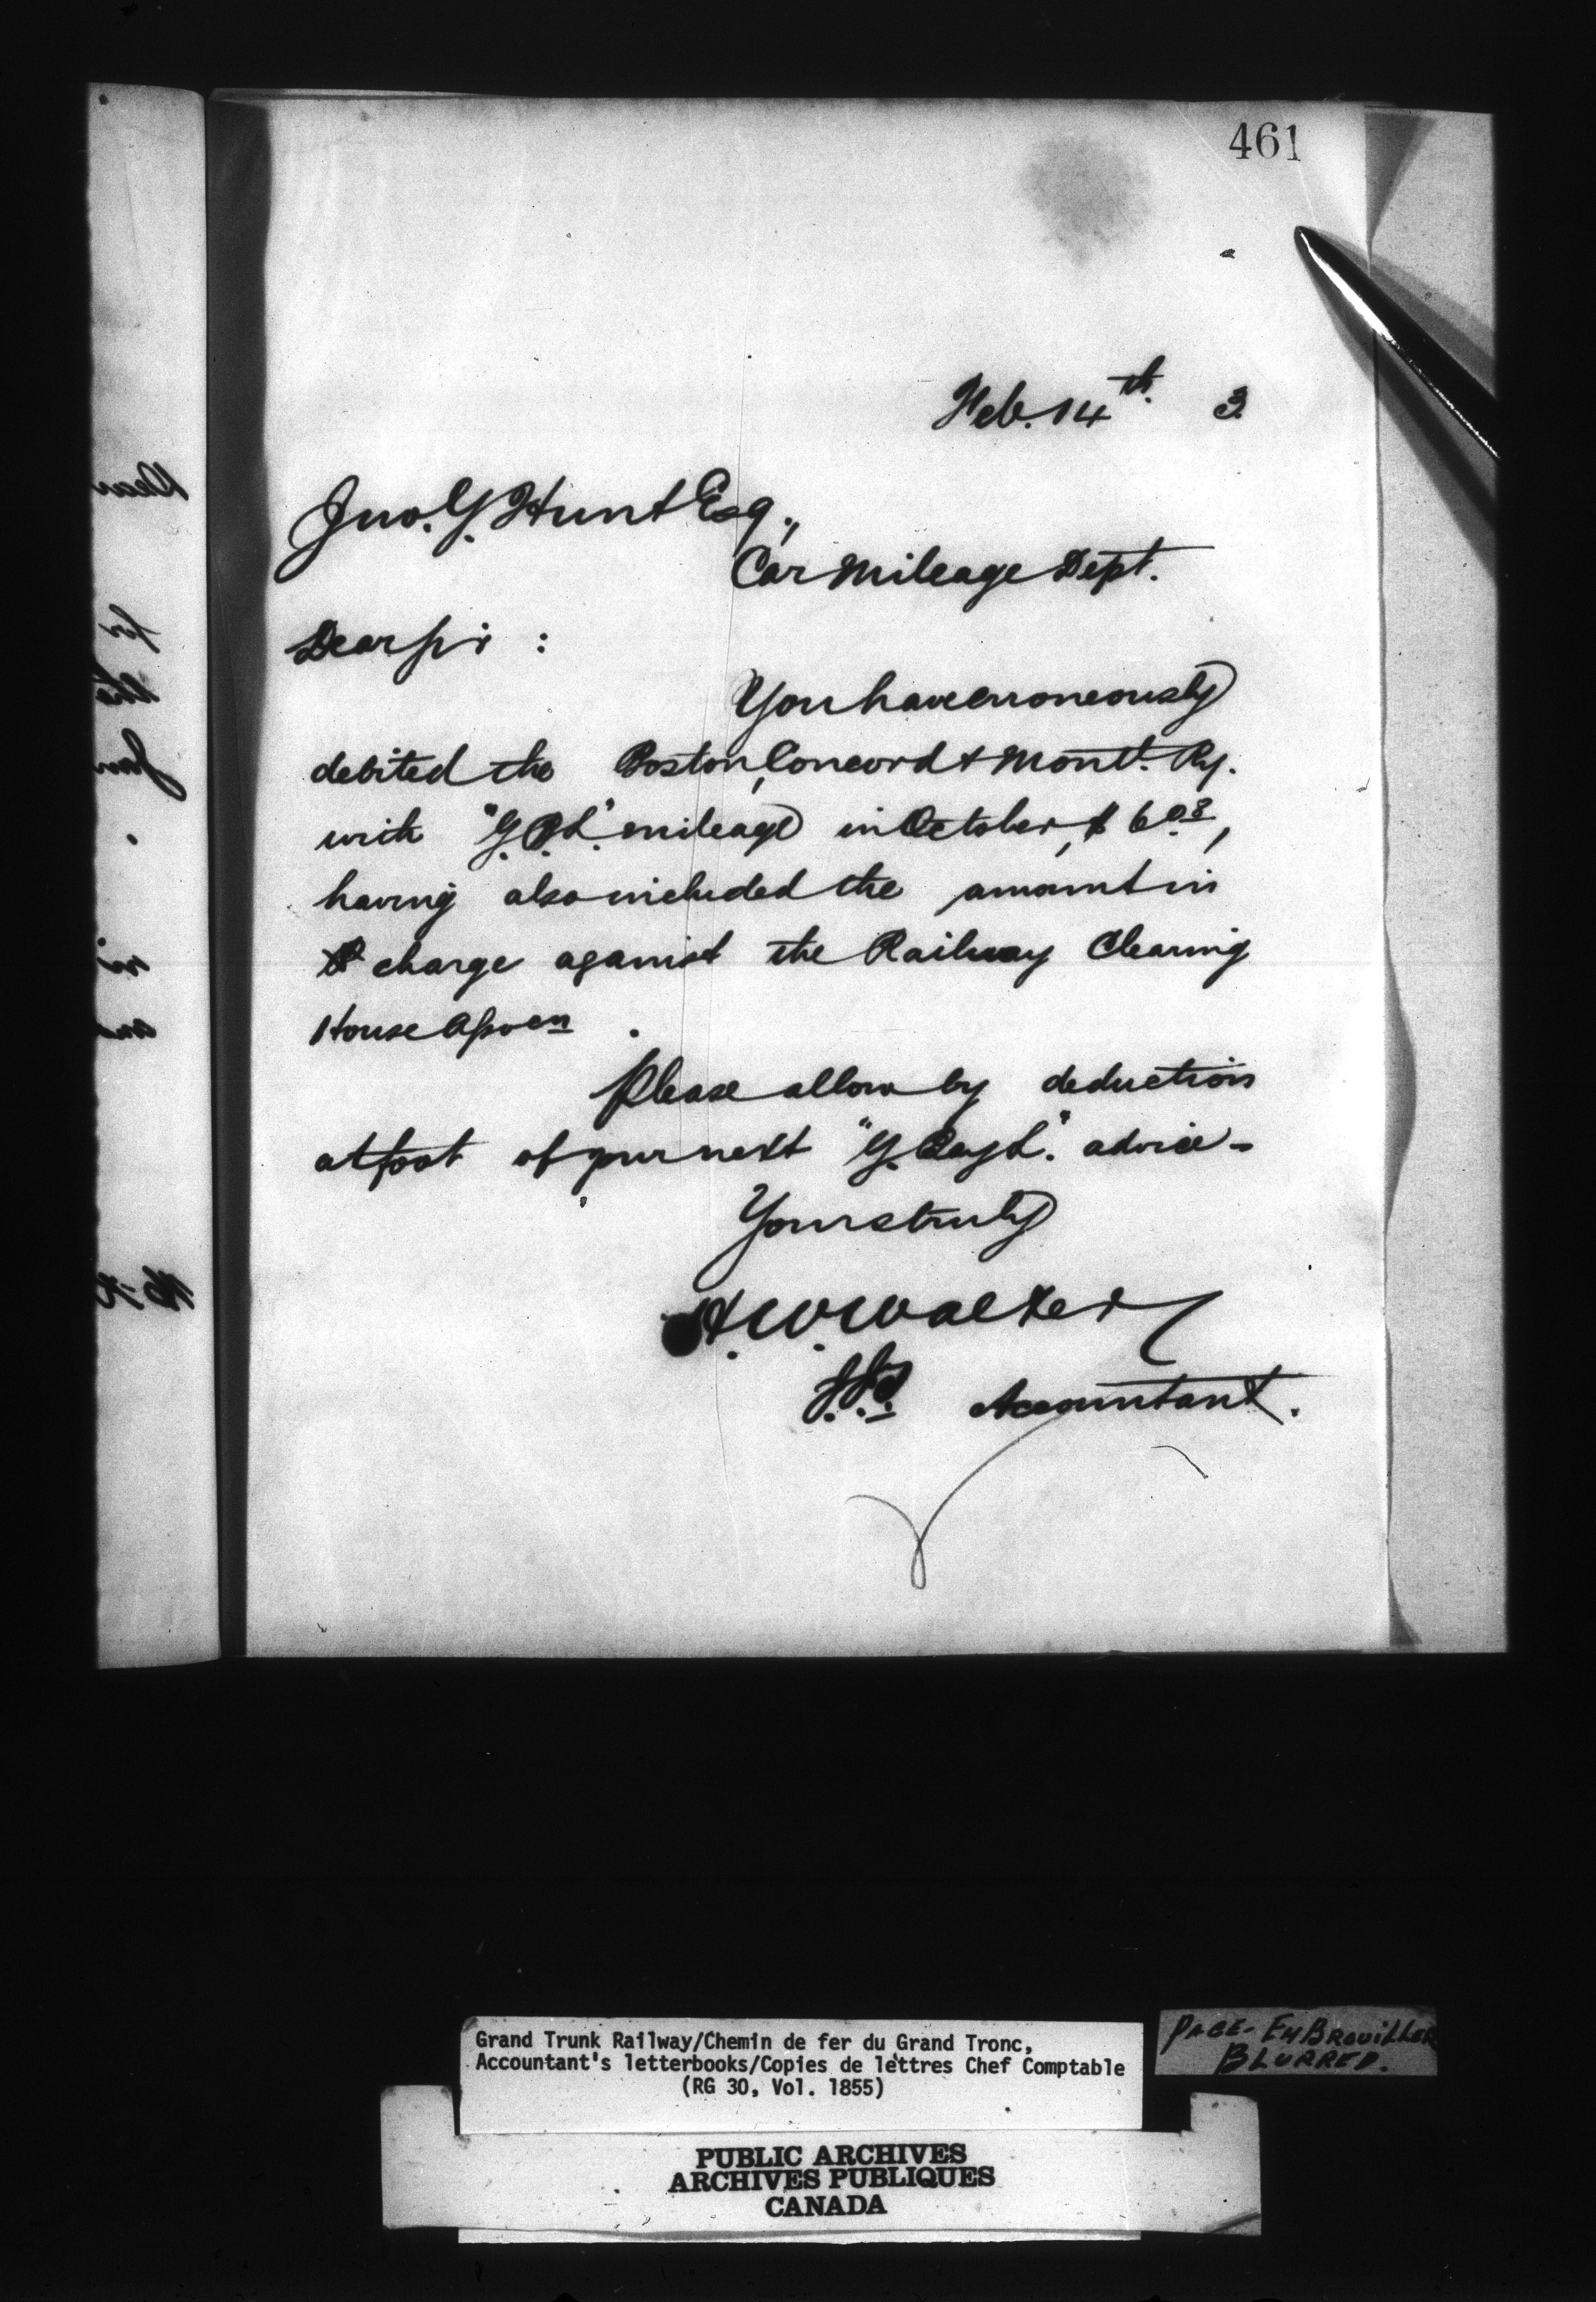 461
Feb. 14th. 3.
Jno. G. Hunt Esq.,
Car Mileage Dept.
Dear Sir :
You have erroneously
debited the Boston, Concord & Mont'l. Ry.
with "G.B.L." mileage in October, $ 6.03,
having also included the amount in
charge against the Railway Clearing
House Asso'cn .
Please allow by deduction
at foot of your next "G. Bay L." advice -
Yours truly
H. W. Walker
Accountant.
Grand Trunk Railway/Chemin de fer du Grand Tronc,
Accountant's letterbooks/Copies de lettres Chef Comptable
(RG 30, Vol. 1855)
PAGE- EMBROUILLER
BLURRED.
PUBLIC ARCHIVES
ARCHIVES PUBLIQUES
CANADA